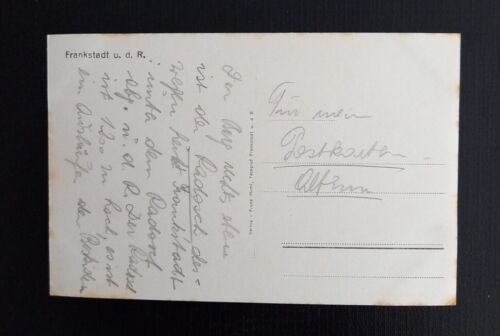 Frankstadt u. d. R.
Der Berg rechts oben
ist der Radosch des-
wegen heißt Frankstadt
unter dem Radosch
abg. u. d. R. Der Radosch
ist 1200 m hoch, es ist
ein Ausläufer der Beskiden
Für mein
Postkarten
Album